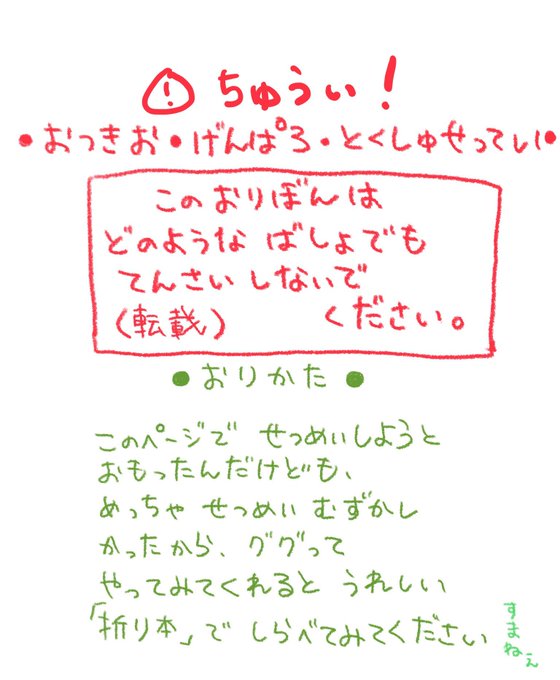 ! ちゅうい!
•おつきお•げんぱろ・とくしゅせってい•
このおりぼんは
どのような ばしょでも
てんさい しないで
(転載) ください。
●おりかた●
このページで せつめいしようと
おもったんだけども、
めっちゃ せつめい むずかし
かったから、ググって
やってみてくれると うれしい
「折り本」で しらべてみてください
すまねぇ